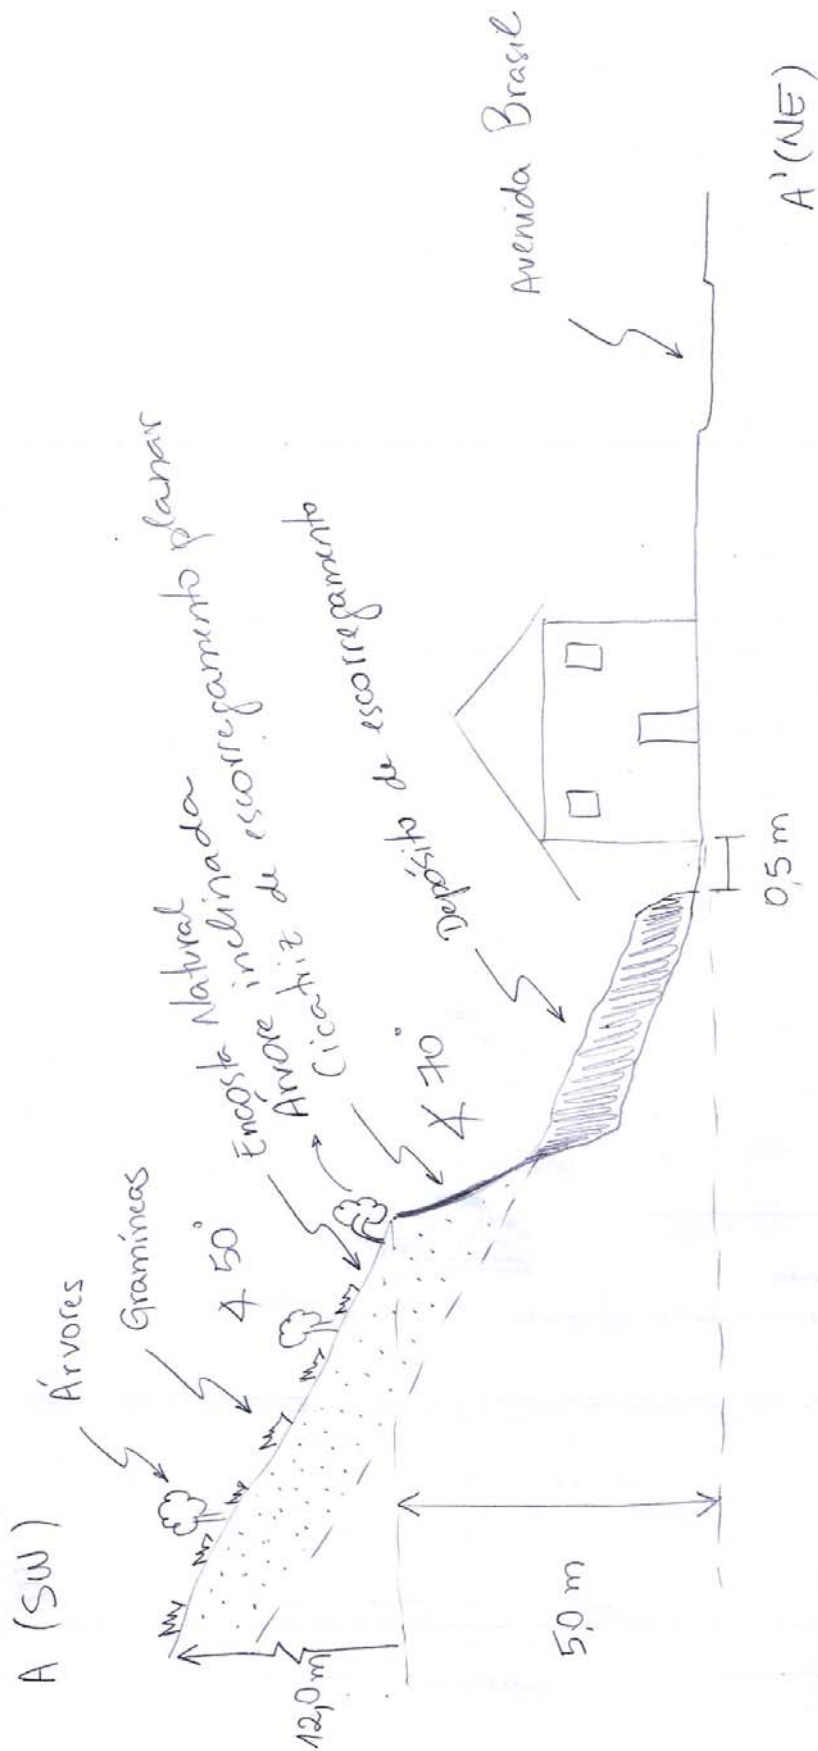 A (SW)
Árvores
Gramíneas
∡ 50°
Encosta Natural
Árvore inclinada
Cicatriz de escorregamento planar
∡ 70°
Depósito de escorregamento
Avenida Brasil
12,0m
5,0 m
0,5 m
A' (NE)